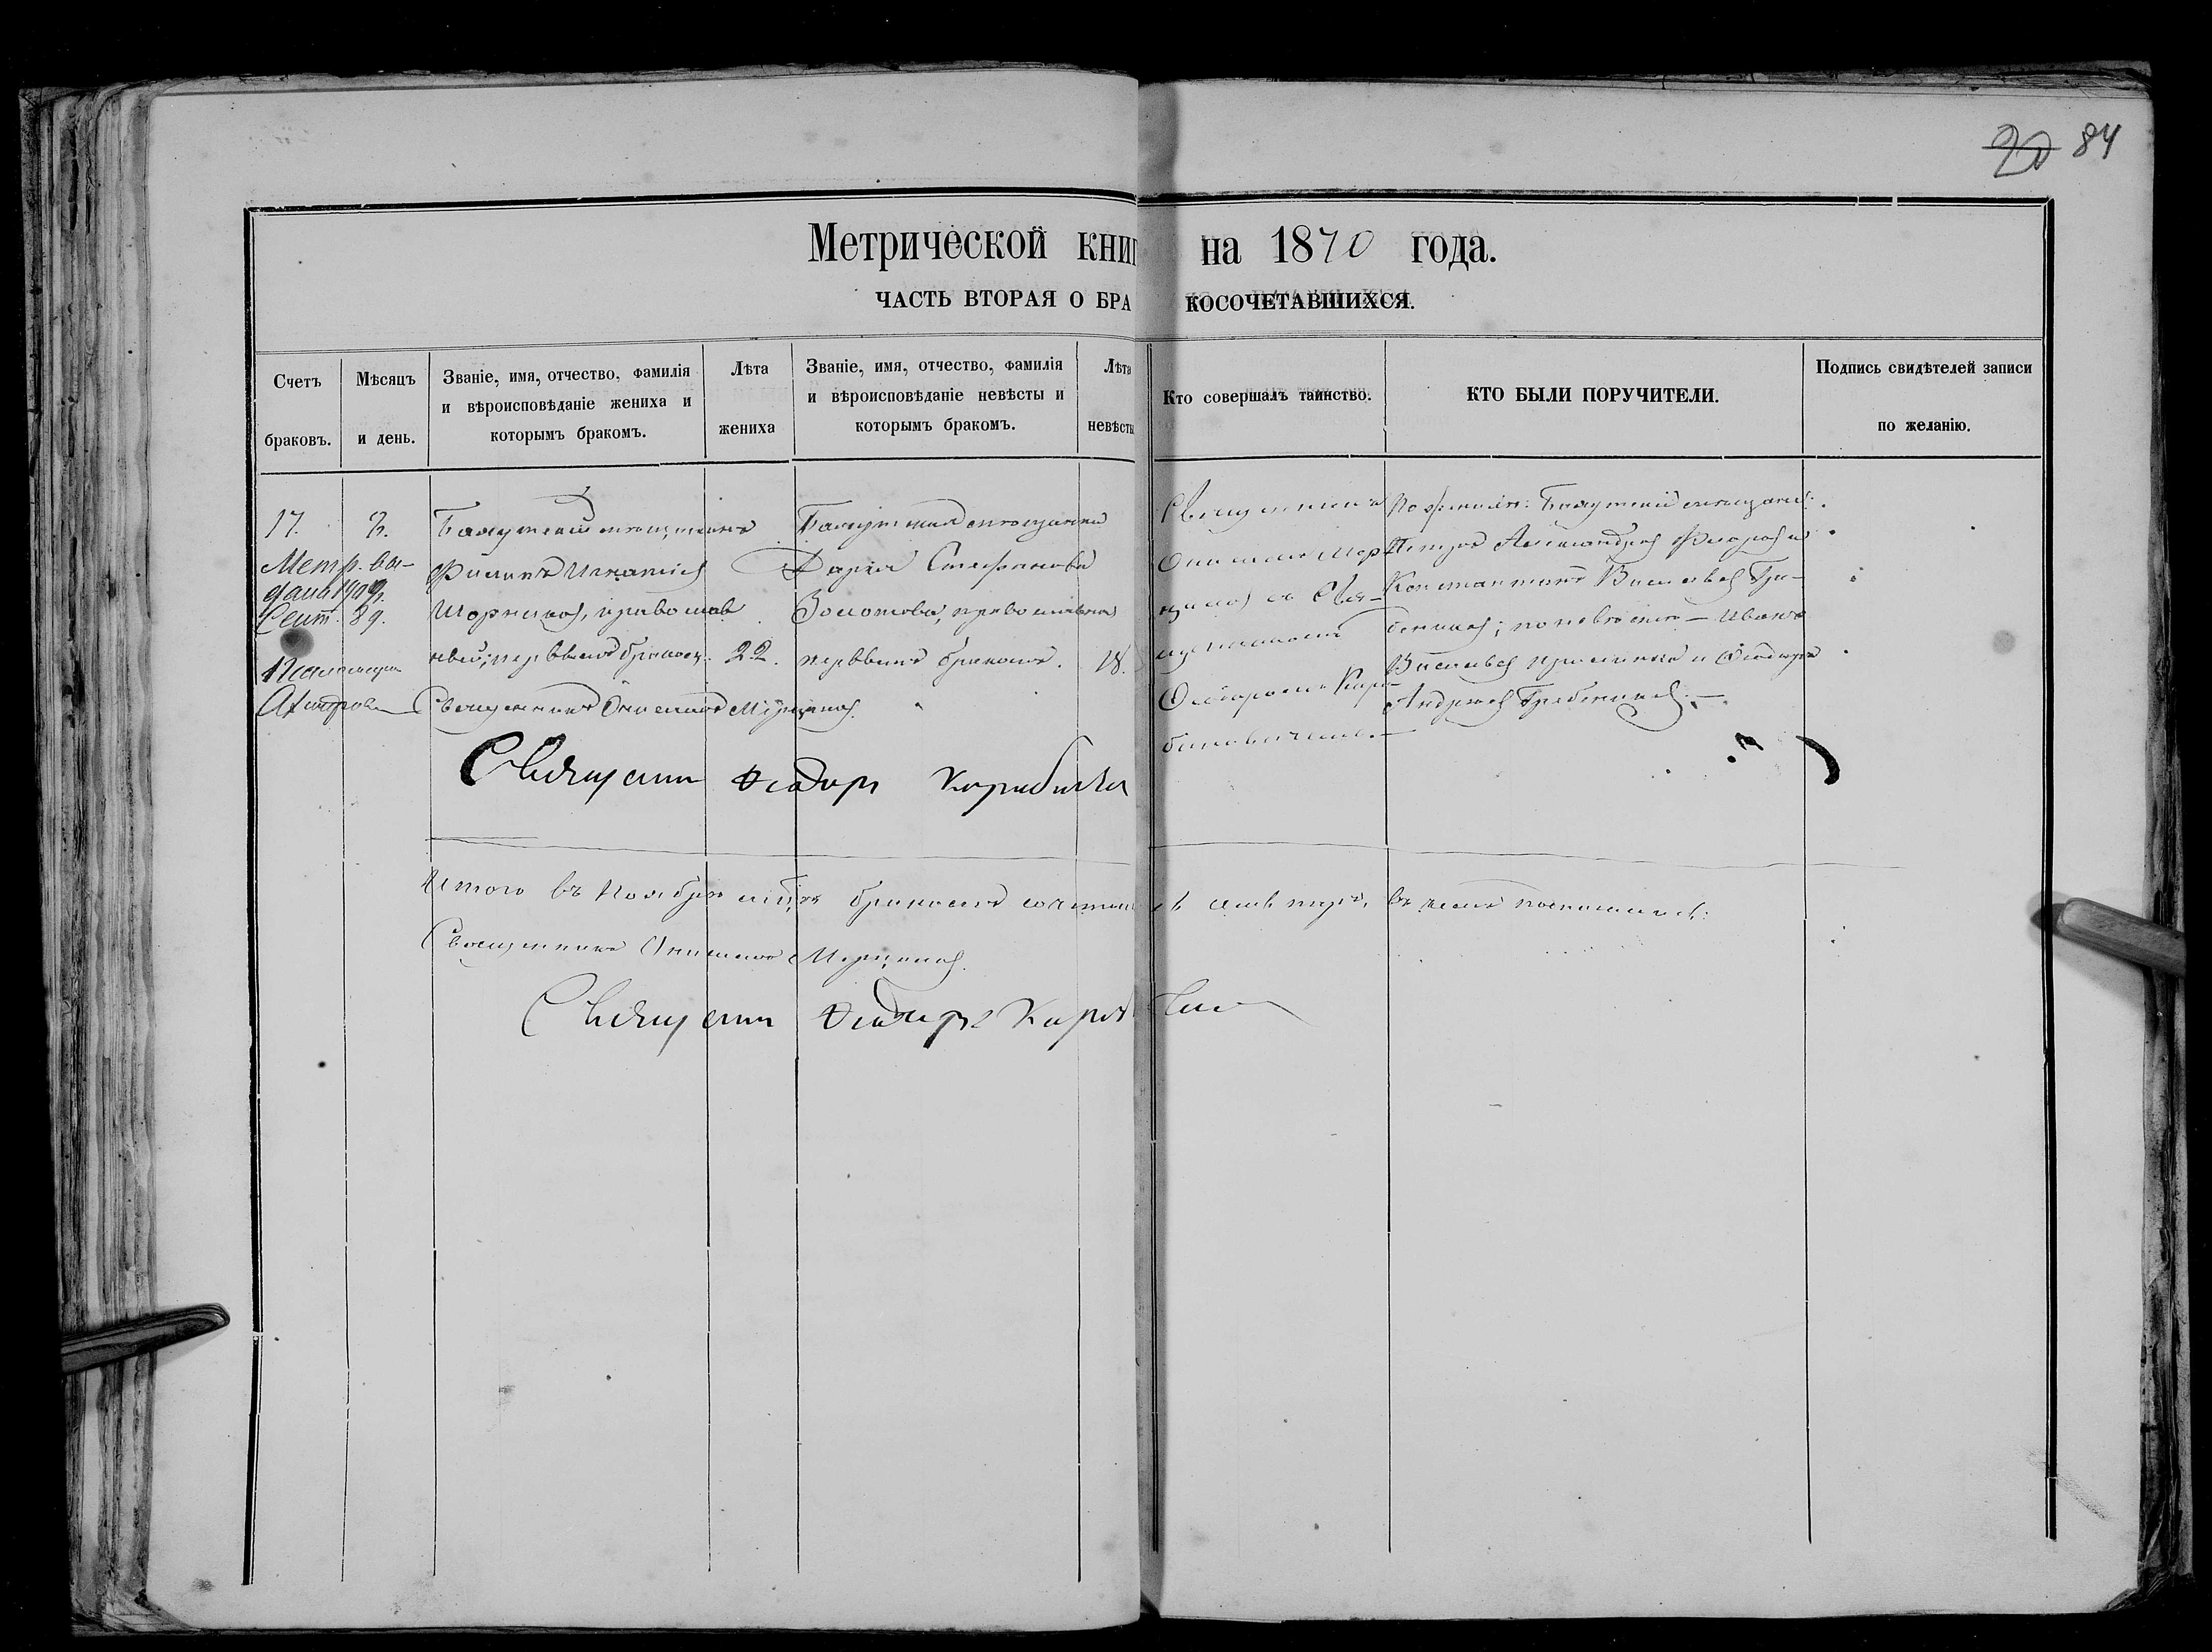 84
Метрической книг на 1870 года.
ЧАСТЬ ВТОРАЯ О БРАКОСОЧЕТАВШИХСЯ.
Счетъ браковъ.
Мѣсяцъ и день.
Званіе, имя, отчество, фамилія и вѣроисповѣданіе жениха и которымъ бракомъ.
Лѣта жениха
Званіе, имя, отчество, фамилія и вѣроисповѣданіе невѣсты и которымъ бракомъ.
Лѣта невѣсты
Кто совершалъ таинство.
КТО БЫЛИ ПОРУЧИТЕЛИ.
Подпись свидѣтелей записи по желанію.
17.
Метр. вы-
дана 1909.
Сент. 89.
мѣщанинъ
Филипъ Игнатіев
православ
ный; первымъ бракомъ.
22.
Священникъ Онисимъ
мѣщанка
Дарья Стефанова
Золотова, православная
первымъ бракомъ.
18.
Священникъ
Онисимъ Мер-
съ Свя-
щенникомъ
Ѳеодоромъ Кара-
По женихѣ: мѣщане:
Петръ Александров Фларов и
Константинъ Васильев Гре-
бенников; по невѣстѣ — Иванъ
Васильев и Ѳеодоръ
Андреев Гребенников. —
Священник Ѳеодоръ
Итого въ Ноябрѣ мѣсяцѣ бракомъ сочетались семь паръ, въ чемъ
Священникъ Онисимъ
Священник Ѳеодоръ